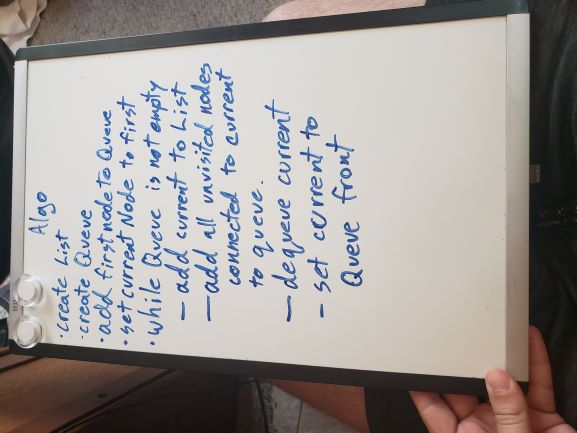 Algo
· Create List
· create Queue
· add first node to Queue
· set current Node to first
· while Queue is not empty
– add current to List
– add all unvisited nodes
connected to current
to queue.
– dequeue current
– set current to
Queue front